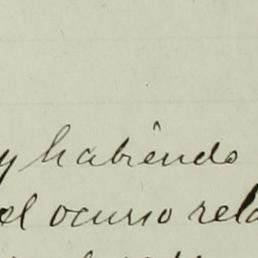 y habiendo
el ocurso rela